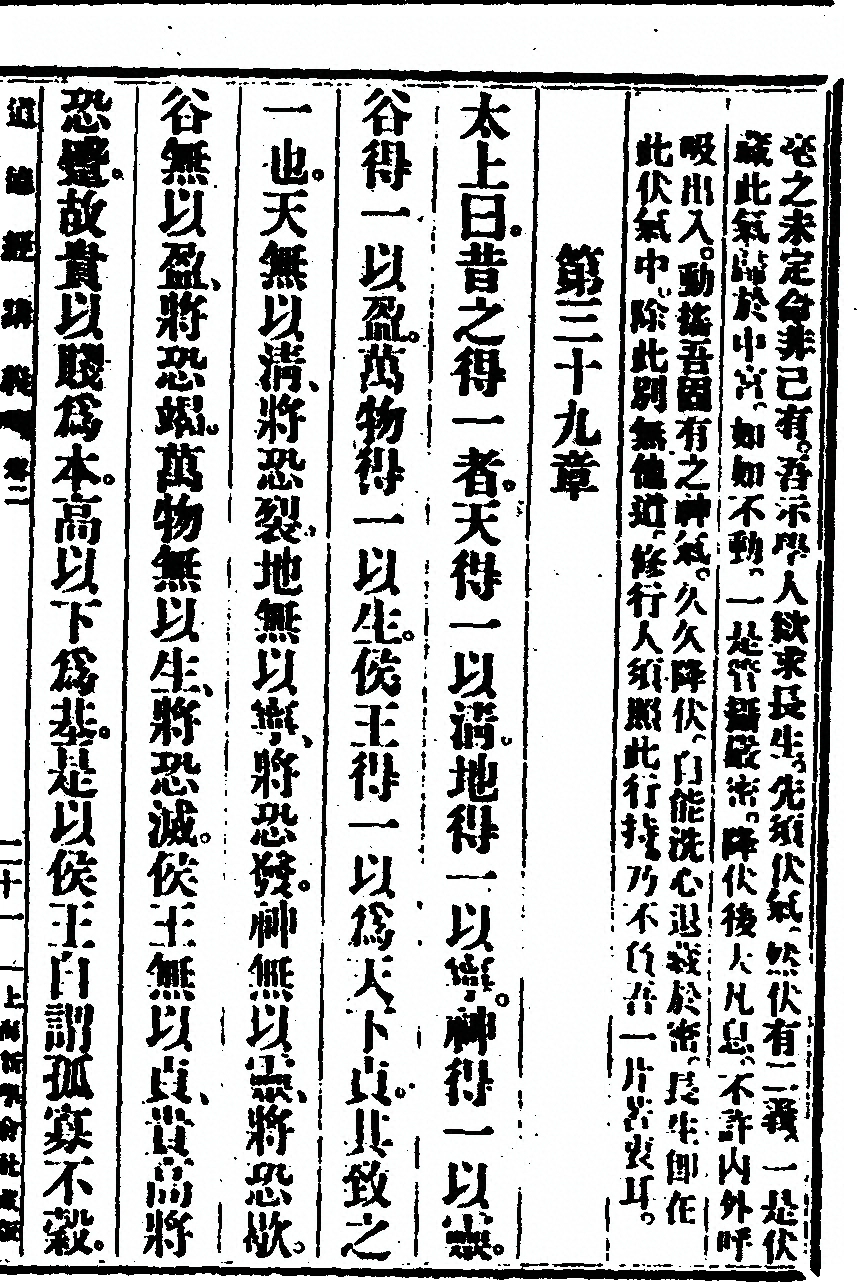 竟之未定命非己有。吾示學人欲求長生。先須伏氣。然伏有二義、一是伏
藏此氣歸於中宮、如如不動、一是管攝嚴密、降伏後天凡息、不許內外呼
吸出入。動搖吾固有之神氣。久久降伏、自能洗心退藏於密。長生卽在
此伏氣中、除此別無他道、修行人須照此行持。乃不負吾一片苦衷耳。
第三十九章
太上曰。昔之得一者。天得一以淸。地得一以寧。神得一以靈。
谷得一以盈。萬物得一以生。侯王得一以爲天下貞。其致之
一也。天無以淸、將恐裂。地無以寧、將恐發。神無以靈、將恐歇。
谷無以盈、將恐竭。萬物無以生、將恐滅。侯王無以貞、貴高將
恐蹷。故貴以賤爲本。高以下爲基。是以侯王自謂孤寡不穀。
道德經講義 卷二 二十一 上海新學會社藏版